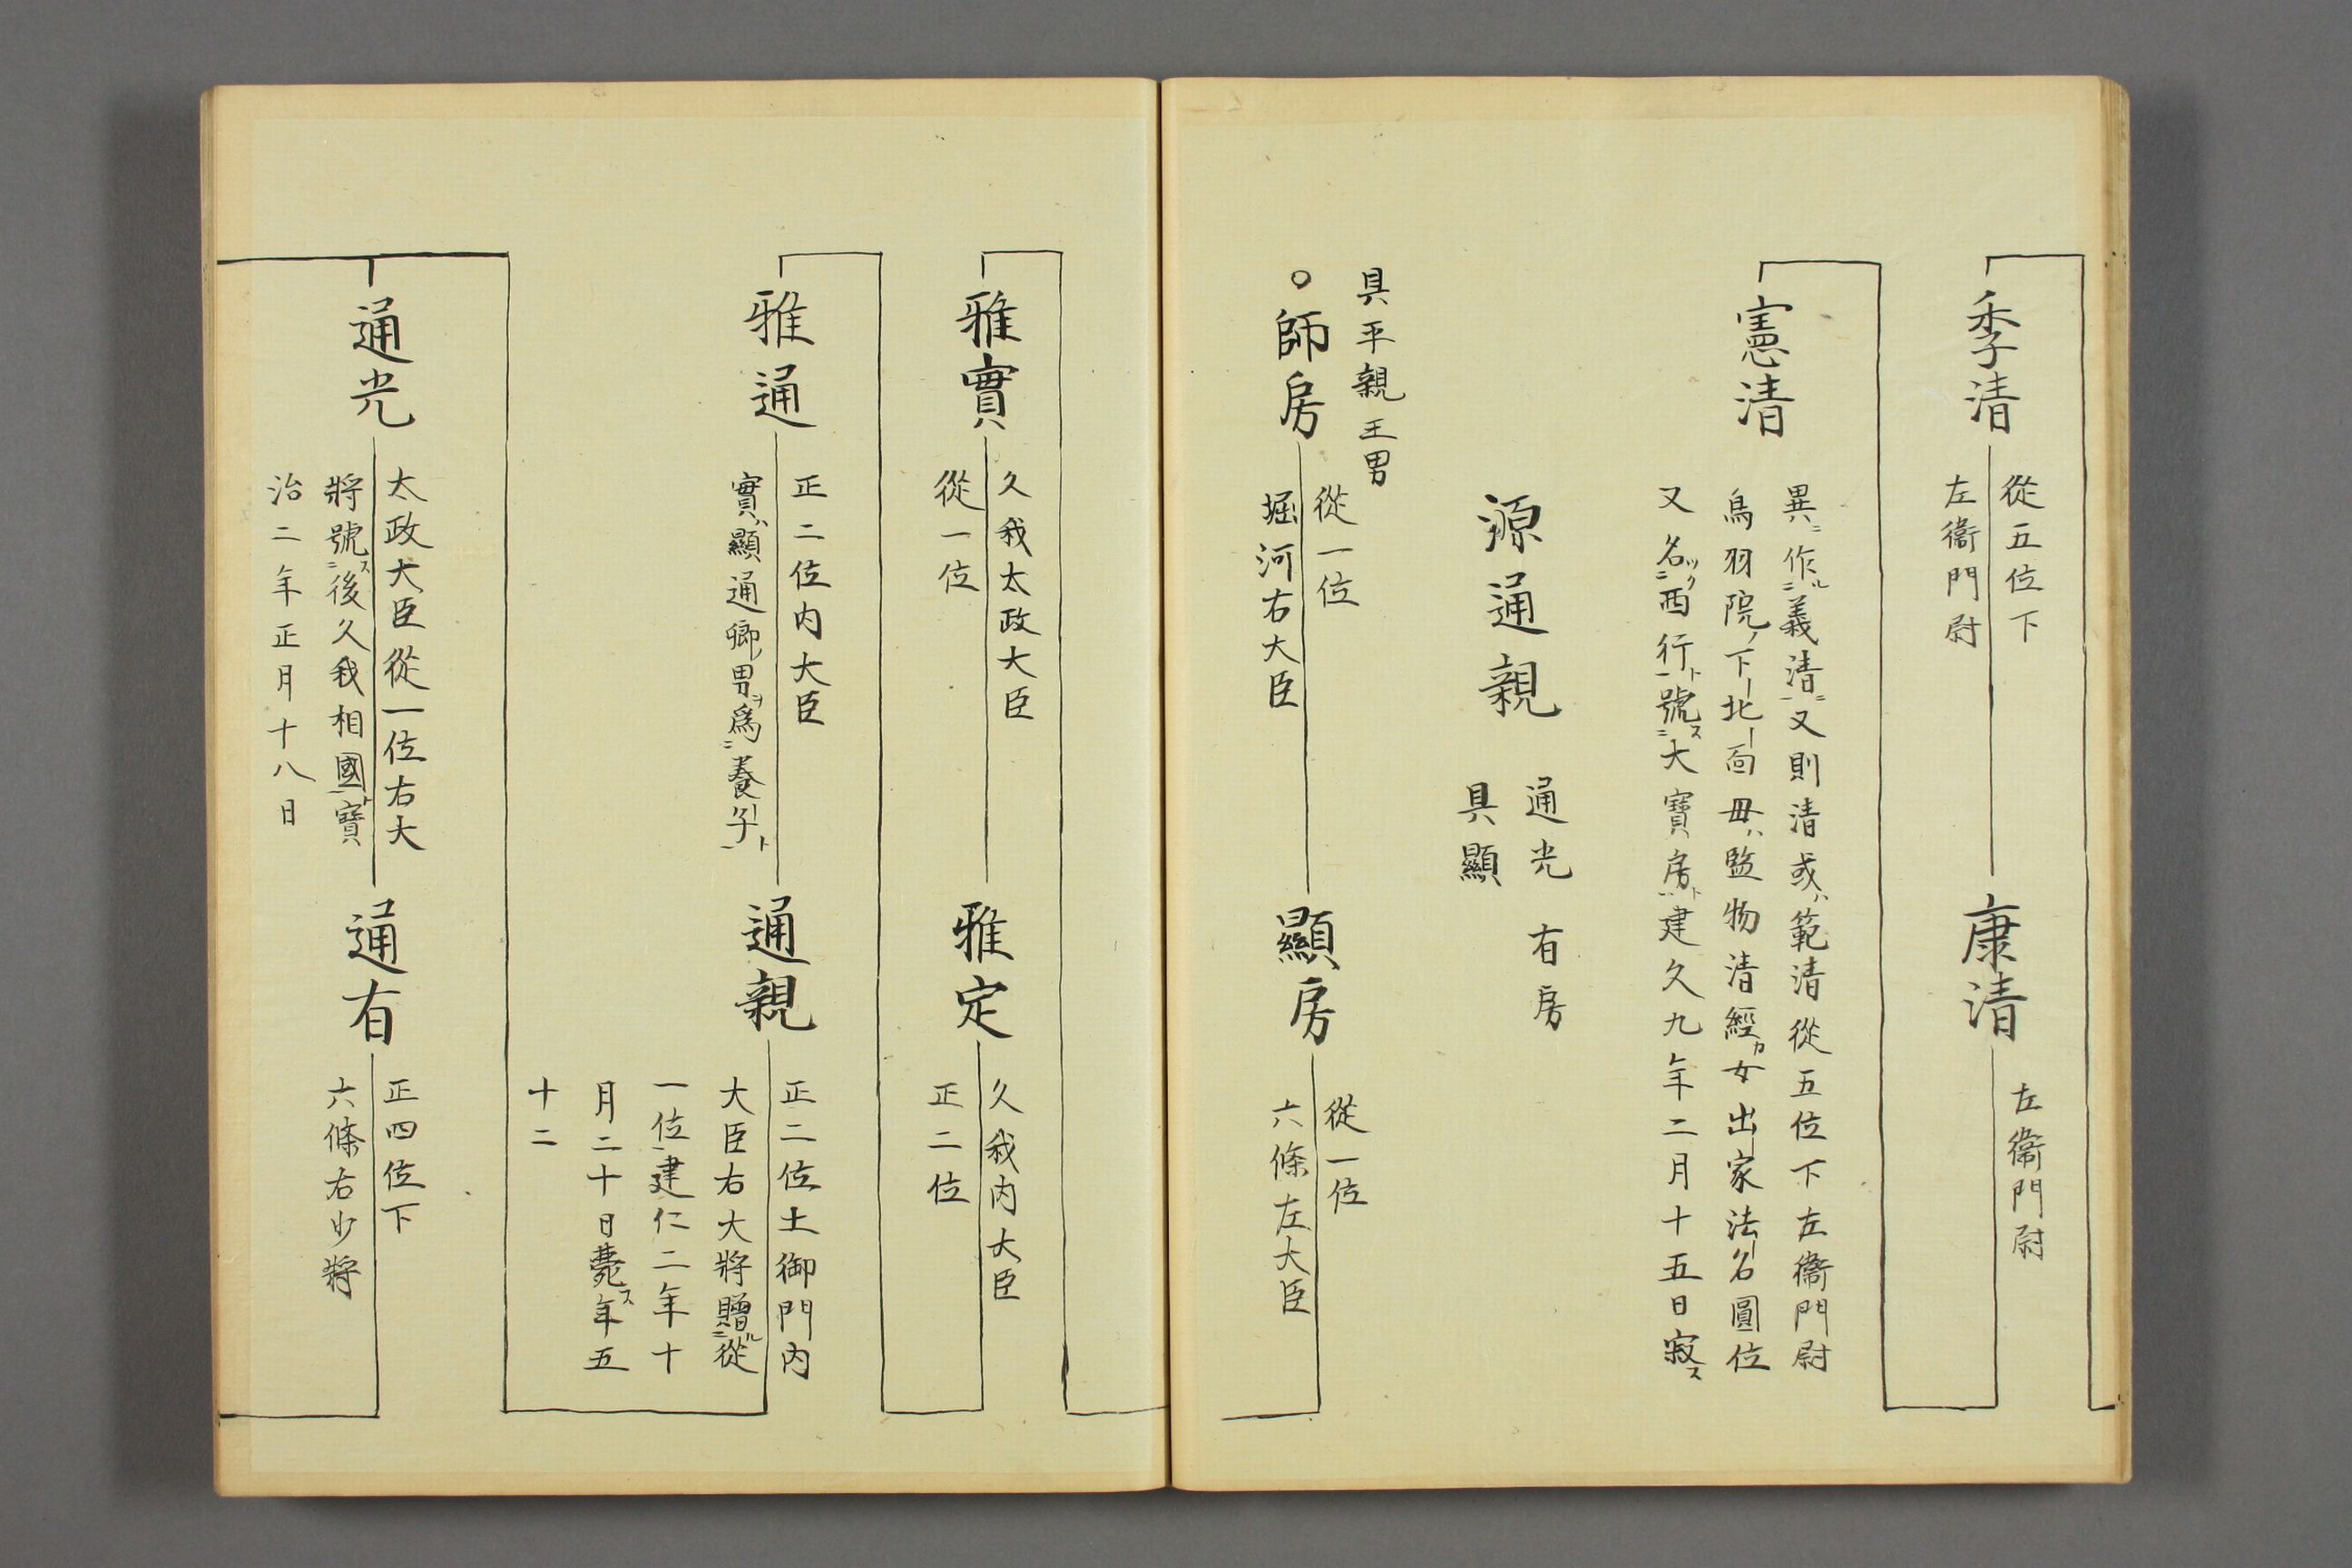 季清
從五位下
左衞門尉
康清
左衞門尉
憲清
異ニ作ル義清ニ又則清或ハ範清從五位下左衞門尉
鳥羽院ノ下北面毋ハ監物清經カ女出家法名圓位
又名ツク西行ト號ス大寶房ト建久九年二月十五日寂ス
源通親
通光 有房
具顯
具平親王男
○師房
從一位
堀河右大臣
顯房
從一位
六條左大臣
雅實
久我太政大臣
從一位
雅定
久我内大臣
正二位
雅通
正二位内大臣
實ハ顯通卿男ヲ爲ニ養子ト
通親
正二位土御門内
大臣右大將贈ル從
一位建仁二年十
月二十日薨ス年五
十二
通光
太政大臣從一位右大
將號ス後久我相國ト寳
治二年正月十八日
通有
正四位下
六條右少將